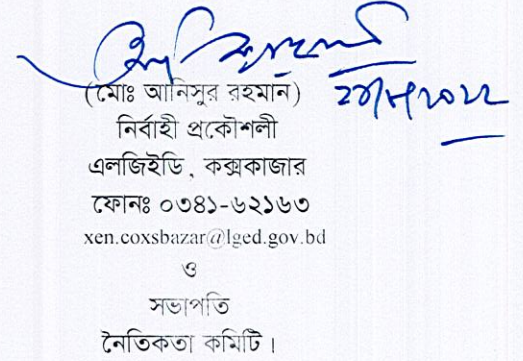 (মোঃ আনিসুর রহমান)
নির্বাহী প্রকৌশলী
এলজিইডি, কক্সকাজার
ফোনঃ ০৩৪১-৬২১৬৩
xen.coxsbazar@lged.gov.bd
ও
সভাপতি
নৈতিকতা কমিটি।